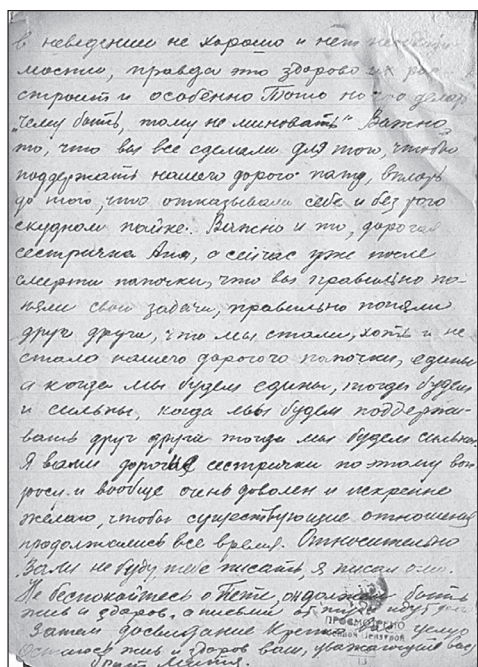 в неведении не хорошо и нет необходи
мости, правда это здорово их рас
строит и особенно Тото но что делать
"чему быть, тому не миновать" Важно
то, что вы все сделали для того, чтобы
поддержать нашего дорогого папу, вплоть
до того, что отказывали себе и без того
скудном пайке. Важно и то, дорогая
сестричка Аня, а сейчас уже после
смерти папочки, что вы правильно по-
няли свои задачи, правильно поняли
друг друга, что мы стали, хоть и не
стало нашего дорогого папочки, едины
а когда мы будем едины, тогда будем
и сильны, когда мы будем поддержи-
вать друг друга тогда мы будем сильны.
Я вами дорогие сестрички по этому воп
росу и вообще очень доволен и искренне
желаю, чтобы существующие отношения
продолжались все время. Относительно
Вали не буду тебе писать, я писал
Не беспокойтесь о Пете, он должен быть
жив и здоров, а письма от него идут долго
Затем досвидание крепко вас целую
Остаюсь жив и здоров ваш, уважающий вас
брат Митя.
ПРОСМОТРЕНО
Военной Цензурой